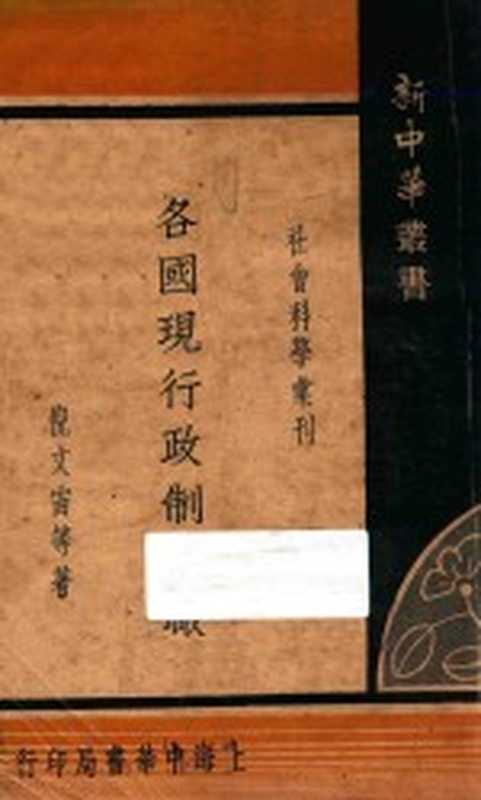 新中華叢書
社會科學彙刊
各國現行政制
倪文宙等著
上海中華書局印行